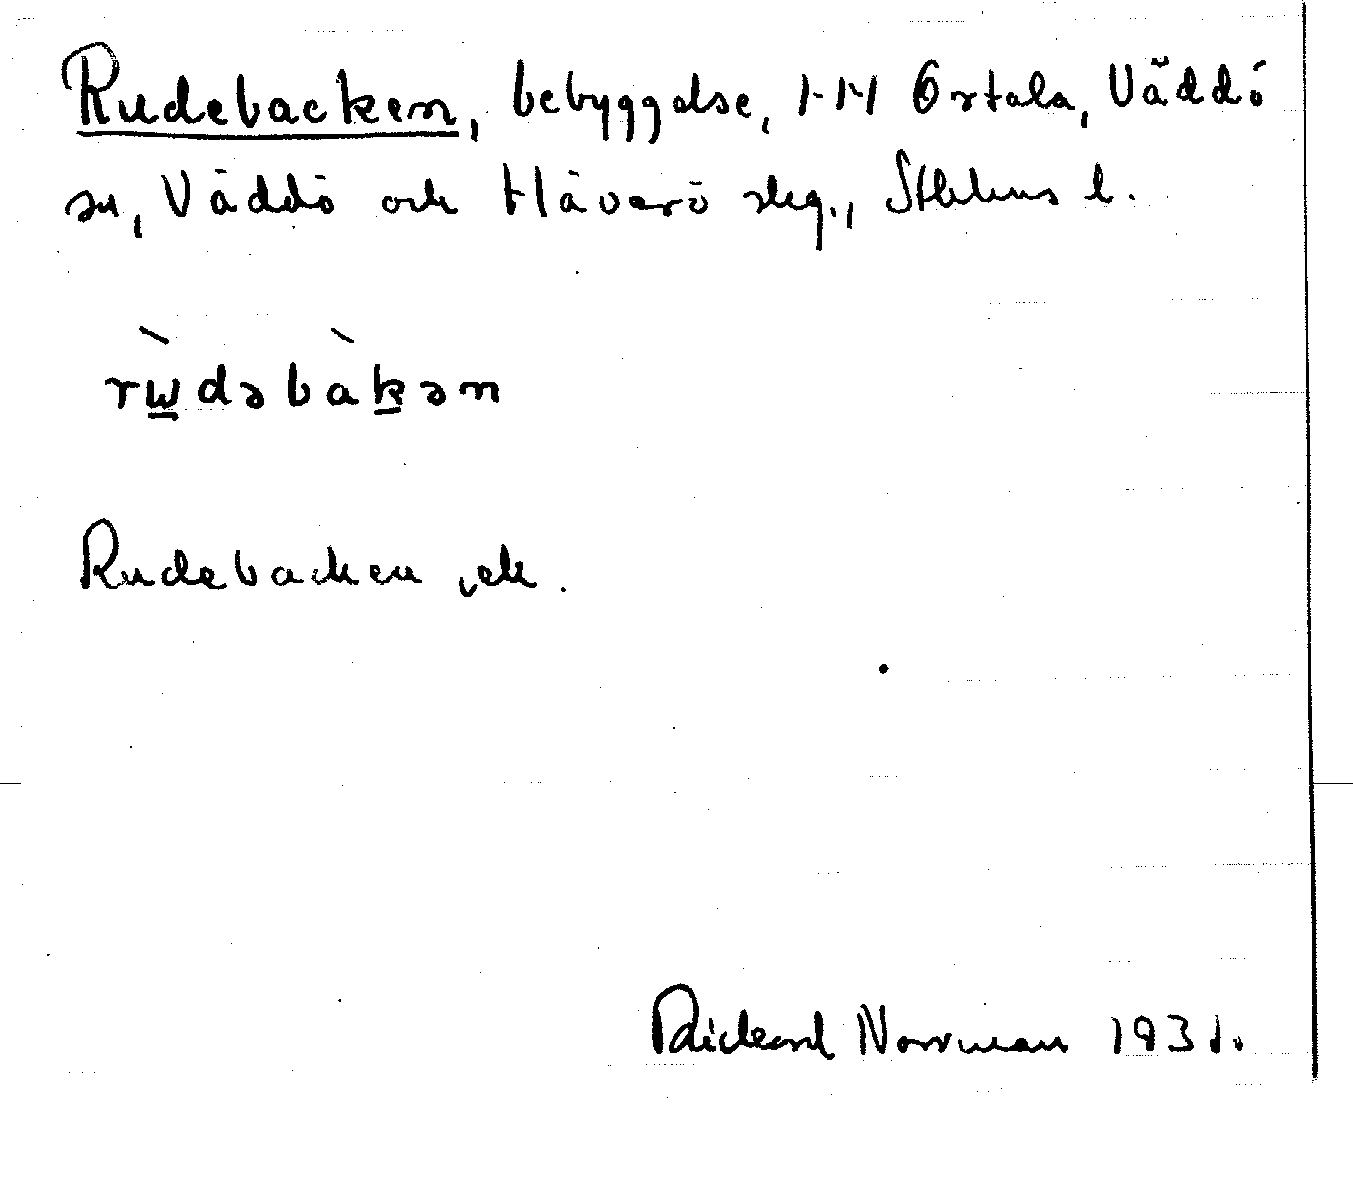 Rudebacken, bebyggelse, HH Ortala, Väddö
sn, Väddö och Häverö skg., Sthlms l.
rẁdəbàkən
Rudebacken, ek.
Rickard Norrman 1931.